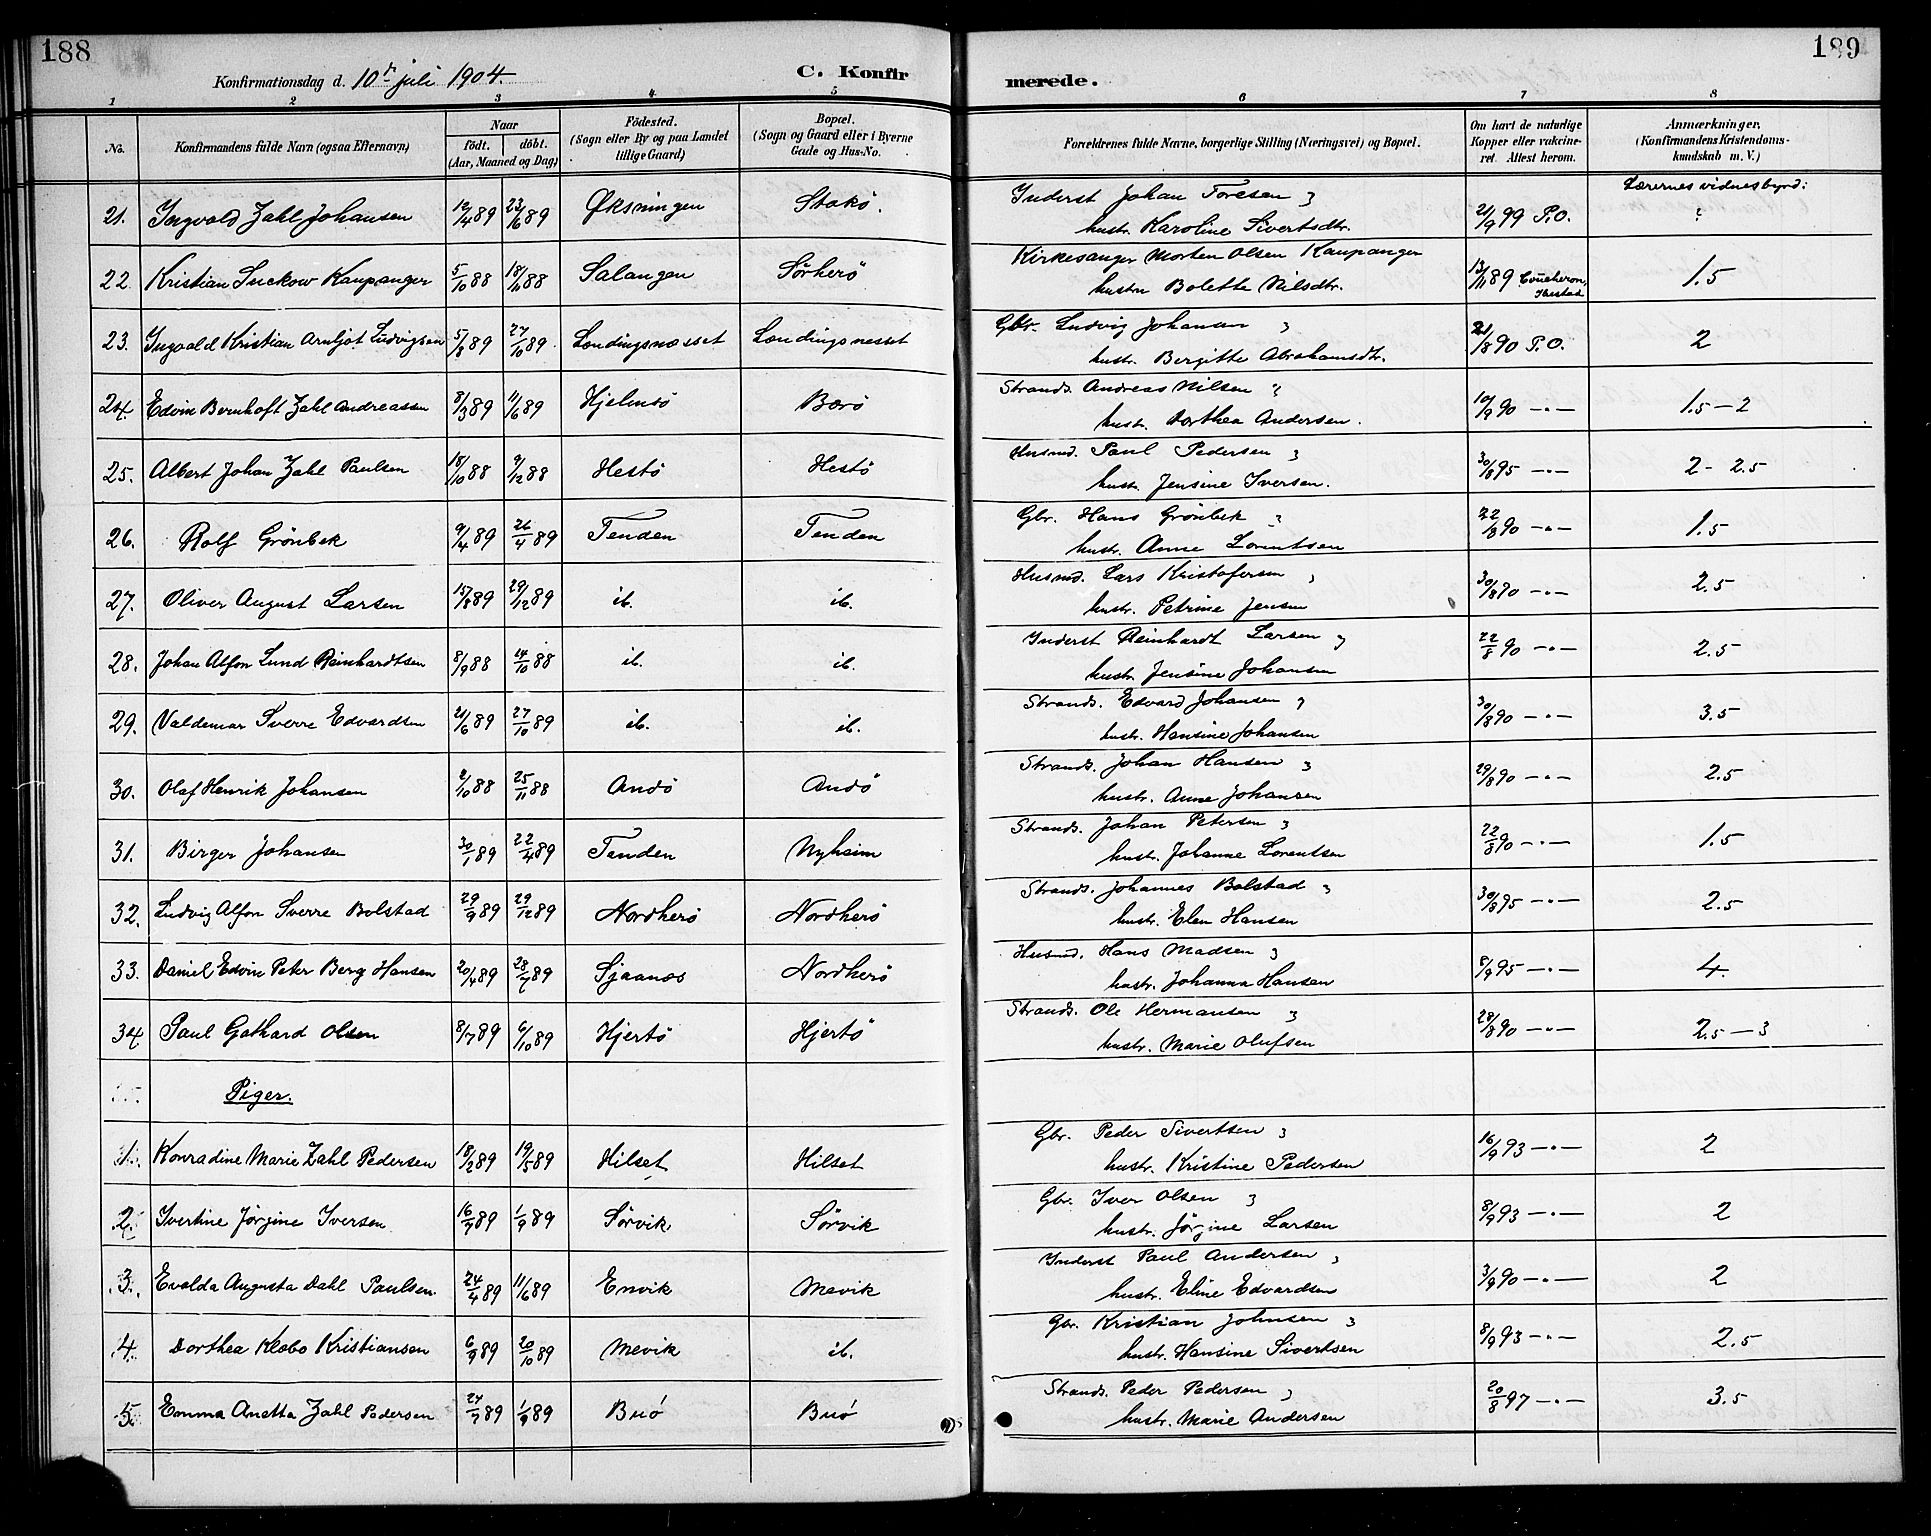 188
189
Konfirmationsdag d. 10de juli 1904.
C. Konfir
merede.
1 2 3 4 5 6 7 8
No.
Konfirmandens fulde Navn (ogsaa Efternavn)
Naar
født. døbt.
(Aar, Maaned og Dag)
Fødested.
(Sogn eller By og paa Landet
tillige Gaard)
Bopæl.
(Sogn og Gaard eller i Byerne
Gade og Hus-No.
Forældrenes fulde Navne, borgerlige Stilling (Næringsvei) og Bopæl.
Om havt de naturlige
Kopper eller vakcine-
ret. Attest herom.
Anmærkninger.
(Konfirmandens Kristendoms-
kundskab m. V.)
Lærernes vidnesbyrd:
21. Ingvald Zahl Johansen 12/4 89 23/6 89 Øksningen Stokø. Inderst Johan Toresen,
hustr. Karoline Sivertsdtr. 21/9 99 P.O. ?
22. Kristian Suckow Kaupanger 5/10 88 18/11 88 Salangen Sørherø Kirkesanger Morten Olsen Kaupanger
hustru Bolette Nilsdtr. 13/11 89 Coucheron, Ibestad 1.5
23. Ingvald Kristian Arnljot Ludvigsen 5/8 89 27/10 89. Løndingsnesset Løndingsnesset Gbr. Ludvig Johansen,
hustr. Bergitte Abrahamsdtr. 21/8 90 P.O. 2
24. Edvin Bernhoft Zahl Andreassen 8/3 89 11/6 89 Hjelmsø Bærø Strands. Andreas Nilsen,
hustr. Dorthea Andersen. 10/9 90 -"- 1.5-2
25. Albert Johan Zahl Paulsen 18/10 88 9/12 88 Hestø Hestø Husmd. Paul Pedersen,
hustr. Jensine Iversen. 30/8 95 -"- 2-2.5
26. Rolf Grönbek 9/4 89 26/4 89 Tenden Tenden Gbr. Hans Grönbek,
hustr. Anne Lorentsen 22/8 90 -"- 1.5
27. Oliver August Larsen 15/8 89 29/12 89 ib. ib. Husmd. Lars Kristofersen,
hustr. Petrine Jensen 30/8 90 -"- 2.5
28. Johan Alfon Lund Reinhardtsen 8/9 88 14/10 88 ib. ib. Inderst Reinhardt Larsen,
hustr. Jensine Johansen 22/8 90 -"- 2.5
29. Valdemar Sverre Edvardsen 21/6 89 27/10 89 ib. ib. Strands. Edvard Johansen,
hustr. Hansine Johansen 30/8 90 -"- 3.5
30. Olaf Henrik Johansen 2/10 88 25/11 88 Andö Andö Strands. Johan Hansen,
hustr. Anne Johansen 29/8 90 -"- 2.5
31. Birger Johansen 30/1 89 22/4 89 Tenden Nyheim Strands. Johan Petersen,
hustr. Johanne Lorentsen 22/8 90 -"- 1.5
32. Ludvig Alfon Sverre Bolstad 29/9 89 29/12 89 Nordherø Nordherø Strands. Johannes Bolstad,
hustr. Elen Hansen 30/8 95 -"- 2.5
33. Daniel Edvin Peter Berg Hansen 20/4 89 28/7 89 Sjaanes Nordherø Husmd. Hans Madsen,
hustr. Johanna Hansen 8/9 95 -"- 4.
34 Paul Gathard Olsen 8/7 89 6/10 89 Hjertø Hjertø Strands. Ole Hermansen,
hustr. Marie Olufsen 28/8 90 -"- 2.5-3
Piger.
1. Konradine Marie Zahl Pedersen 18/2 89 19/5 89 Hilset Hilset Gbr. Peder Sivertsen,
hustr. Kristine Pedersen 16/9 93 -"- 2
2. Ivertine Jørgine Iversen 16/7 89 1/9 89 Sørvik Sørvik Gbr. Iver Olsen,
hustr. Jørgine Larsen 8/9 93 -"- 2
3. Evalda Augusta Dahl Paulsen. 24/4 89 11/6 89 Envik Mevik Inderst Paul Andersen,
hustr. Eline Edvardsen 3/9 90 -"- 2
4. Dorthea Klæbo Kristiansen 6/9 89 20/10 89 Mevik ib. Gbr. Kristian Johnsen,
hustr. Hansine Sivertsen 8/9 93 -"- 2.5
5. Emma Anetta Zahl Pedersen 24/7 89 1/9 89 Buø Buø Strands. Peder Pedersen,
hustr. Marie Andersen 20/8 97 -"- 3.5